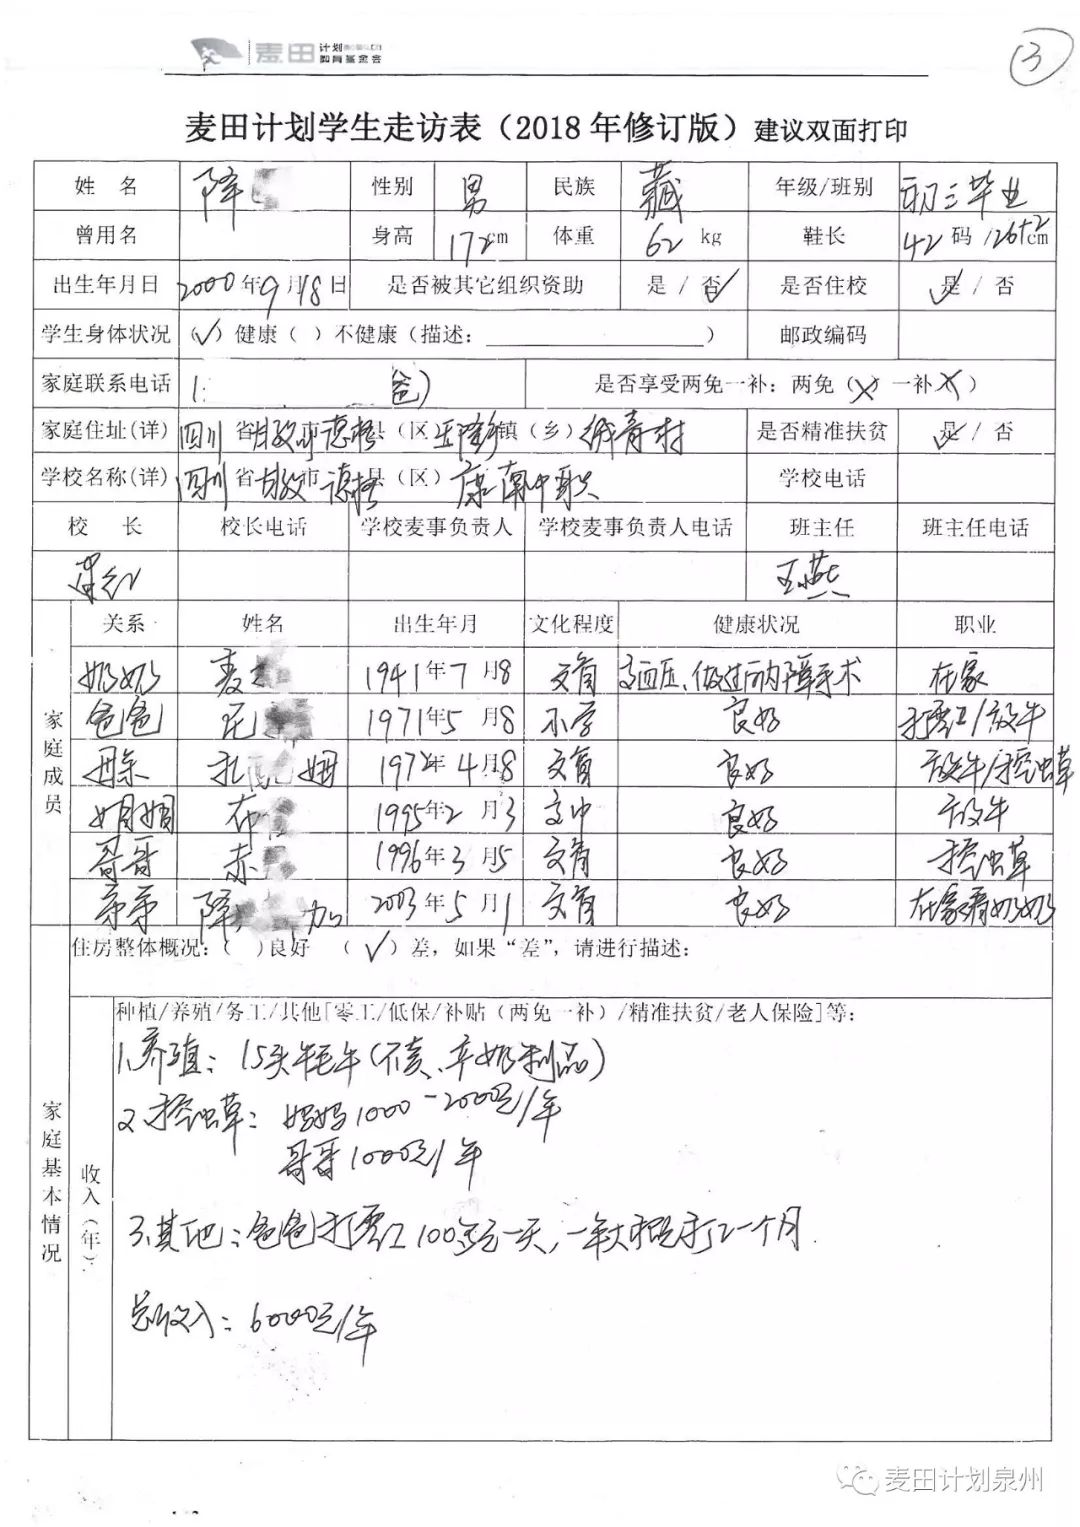 麦田 计划
教育基金会
3
麦田计划学生走访表（2018年修订版）建议双面打印
姓 名 降 性别 男 民族 藏 年级/班别 初三毕业
曾用名 身高 172cm 体重 62 kg 鞋长 42码/26+2cm
出生年月日 2000年9月18日 是否被其它组织资助 是/否√ 是否住校 是√/否
学生身体状况 (√)健康( )不健康(描述：) 邮政编码
家庭联系电话 1 爸) 是否享受两免一补：两免(×)一补(×)
家庭住址(详) 四川省甘孜市德格县(区) 镇(乡) 青村 是否精准扶贫 是√/否
学校名称(详) 四川省甘孜市德格县(区)康南中职 学校电话
校 长 校长电话 学校麦事负责人 学校麦事负责人电话 班主任 班主任电话
王燕
家庭成员
关系 姓名 出生年月 文化程度 健康状况 职业
奶奶 麦 1941年7月8 文盲 高血压、做过白内障手术 在家
爸爸 尼 1971年5月8 小学 良好 打零工/放牛
母亲 扎 姆 1972年4月8 文盲 良好 放牛/挖虫草
姐姐 布 1995年2月3 良好 放牛
哥哥 赤 1996年3月5 文盲 良好 挖虫草
弟弟 降 加 2003年5月1 文盲 良好 在家看奶奶
家庭基本情况
住房整体概况：( )良好 (√)差，如果“差”，请进行描述：
收入（年）
种植/养殖/务工/其他[零工/低保/补贴（两免一补）/精准扶贫/老人保险]等：
1.养殖：15头牦牛(不卖、 奶制品)
2.挖虫草：妈妈1000-2000元/年
哥哥1000元/年
3.其他：爸爸打零工100多元一天，一年大概打工一个月
总收入：6000元/年
麦田计划泉州